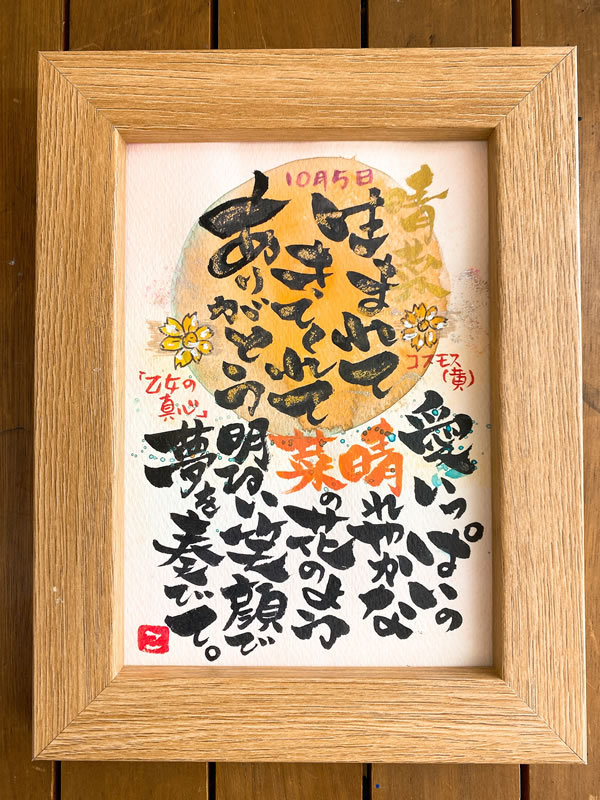 10月5日
生まれて
きてくれて
ありがとう
コスモス
(黄)
「乙女の
真心」
愛いっぱいの
晴れやかな
菜の花のよう
明るい笑顔で
夢を奏でて。
こ